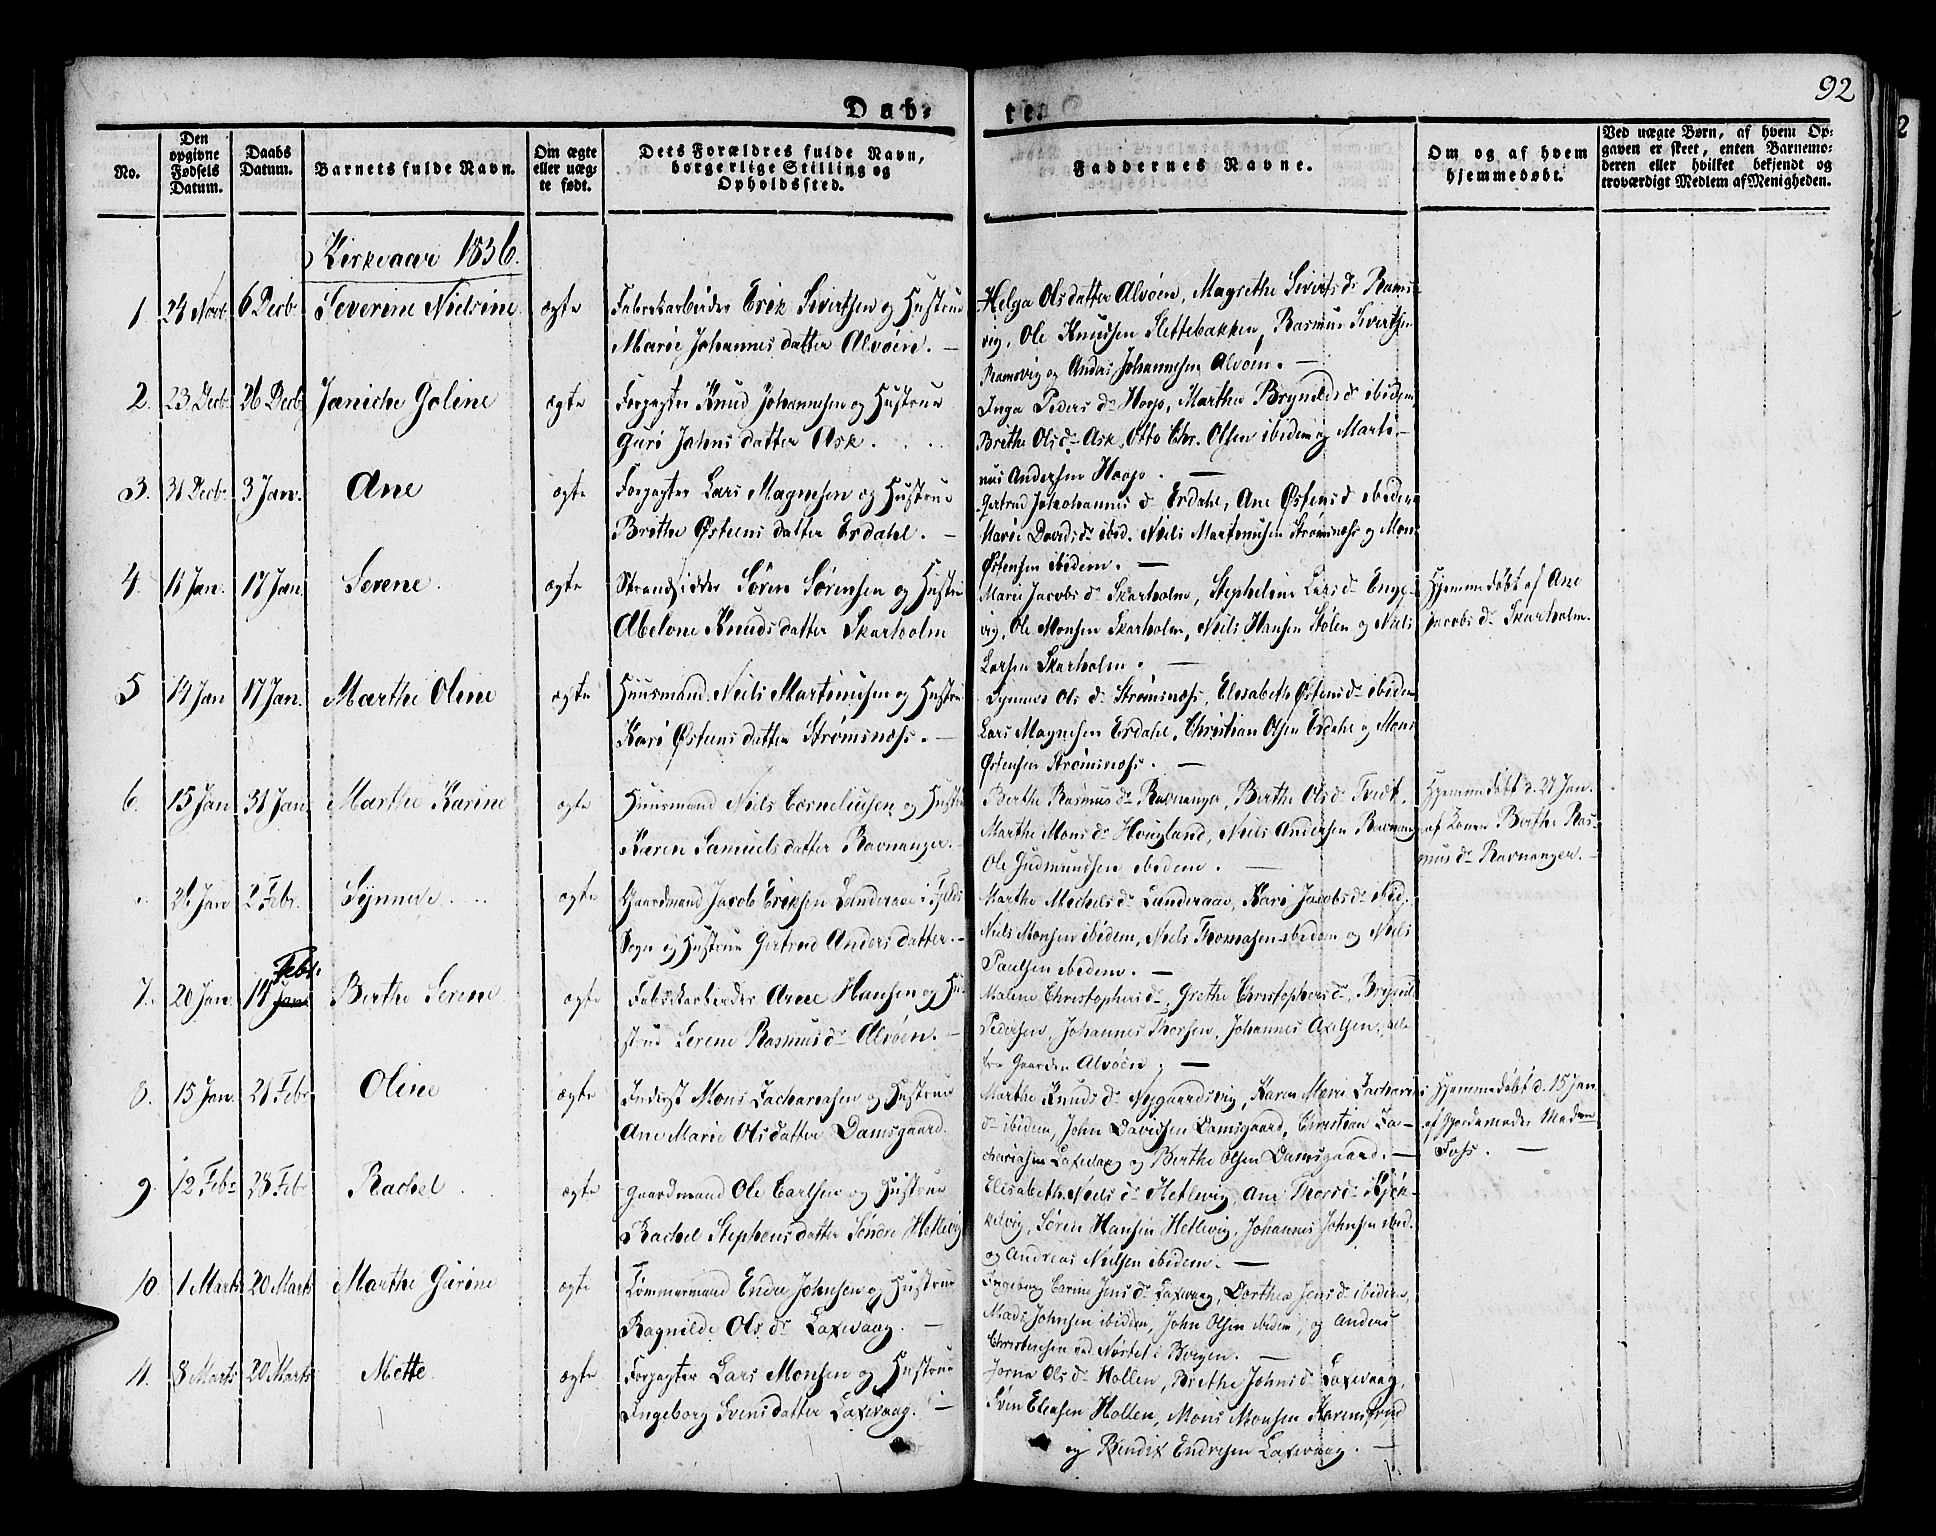 92
Daab-
te.
No.
Den opgivne Fødsels Datum.
Daabs Datum.
Barnets fulde Navn.
Om ægte eller uægte født.
Dets Forældres fulde Navn, borgerlige Stilling og Opholdssted.
Faddernes Navne.
Om og af hvem hjemmedøbt.
Ved uægte Børn, af hvem Opgaven er skeet, enten Barnemoderen eller hvilket bekjendt og troværdigt Medlem af Menigheden.
Kirkeaar 1836.
1. 24 Novb. 6 Decb. Severine Nielsine ægte Fabrikarbeider Erik Sivertsen og Hustrue
Marie Johannesdatter Alvøen. —
Helga Olsdatter Alvøen, Magrethe Siverts dr Rams-
vig, Ole Knudsen Slettebakken, Rasmus Sivertsen
Ramsvig og Anders Johannesen Alvøen. —
2. 23 Decb. 26 Decb. Janiche Goline ægte Forpagter Knud Johannesen og Hustrue
Guri Johnsdatter Ask.
Inga Peders dr Hopp, Marthe Brynilds dr ibidem,
Brithe Ols dr Ask, Otto Chr. Olsen ibidem og Marti-
nus Andersen Hopp. —
3. 31 Decb. 3 Jan. Ane ægte Forpagter Lars Magnesen og Hustrue
Brithe Østensdatter Erdahl. —
Gertrud Johannes d Erdahl, Ane Østens d ibidem
Marie Davids dr ibid. Niels Martinusen Strømsnæss og Mons
Østensen ibidem. —
4. 11 Jan. 17 Jan. Serene ægte Strandsidder Sören Sørensen og Hustru
Abelone Knudsdatter Skarholm
Marie Jacobs dr Skarholm, Stepheline Lars dr Enge-
vig, Ole Monsen Skarholm, Niels Hansen Stølen og Niels
Larsen Skarholm. —
Hjemmedøbt af Ane
Jacobs dr Skarholm.
5 14 Jan 17 Jan. Marthe Oline ægte Huusmand Niels Martinusen og Hustru
Kari Østensdatter Strømsnæss. —
Synneve Ols dr Strømsnæss, Elisabeth Østens dr ibidem
Lars Magnesen Erdahl, Christian Olsen Erdahl og Mons
Østensen Strømsnæss. —
6. 15 Jan 31 Jan. Marthe Karine ægte Huusmand Niels Corneliusen og Hustru
Karen Samuelsdatter Ravnanger. —
Berthe Rasmus dr Ravnanger, Berthe Ols dr Tveit,
Marthe Mons dr Hougland, Niels Andersen Ravnang
Ole Gudmundsen ibidem. —
Hjemmedøbt d. 27 Jan.
af Konen Berthe Ras-
mus dr Ravnanger. —
26 Jan 2 Febr. Synneve ægte Gaardmand Jacob Eriksen Landeraae i Fjelds
Sogn og Hustrue Gertrud Andersdatter. —
Marthe Mechels dr Landeraae, Kari Jacobs dr ibid.
Niels Monsen ibidem, Niels Thomasen ibidem og Niels
Paulsen ibidem. —
7. 20 Jan. 14 Jan. Febr. Berthe Serene ægte Fabrikarbeider Arne Hansen og Hu-
strue Serene Rasmus dr Alvøen. —
Malene Christophers dr, Grethe Christophers dr, Brynild
Pedersen, Johannes Thorsen, Johannes Axelsen, alle
fra Gaarden Alvøen. —
8. 15 Jan. 21 Febr Oline ægte Inderst Mons Zachariasen og Hustrue
Ane Marie Olsdatter Damsgaard.
Marthe Knuds dr Nygaardsvig, Karen Marie Zacharia
dr ibidem, John Davidsen Damsgaard, Christian Za-
chariasen Laxevaag og Berthe Olsen Damsgaard. —
Hjemmedøbt d. 15 Jan.
af Gjordemoder Madam
Foss. —
9. 12 Febr 28 Febr Rachel ægte Gaardmand Ole Carlsen og Hustrue
Rachel Stephensdatter Søndre Hetlevig
Elisabeth Niels dr Hetlevig, Ane Thors dr Kjøk-
kelvig, Sören Hansen Hetlevig, Johannes Johnsen ibid.
og Andreas Nielsen ibidem. —
10. 1 Marts 20 Marts Marthe Gurine ægte Tømmermand Endre Johnsen og Hustrue
Ragnilde Ols dr Laxevaag. —
Ingeborg Carine Jens dr Laxevaag, Dorthea Jens dr ibidem,
Mads Johnsen ibidem, John Olsen ibidem, og Anders
Christensen ved Nøstet i Bergen. —
11. 8 Marts 20 Marts Mette ægte Forpagter Lars Monsen og Hustrue
Ingeborg Svensdatter Laxevaag. —
Jorna Ols dr Hollen, Brithe Johns dr Laxevaag,
Sven Eliasen Hollen, Mons Monsen
og Bendix Endresen Laxevaag. —